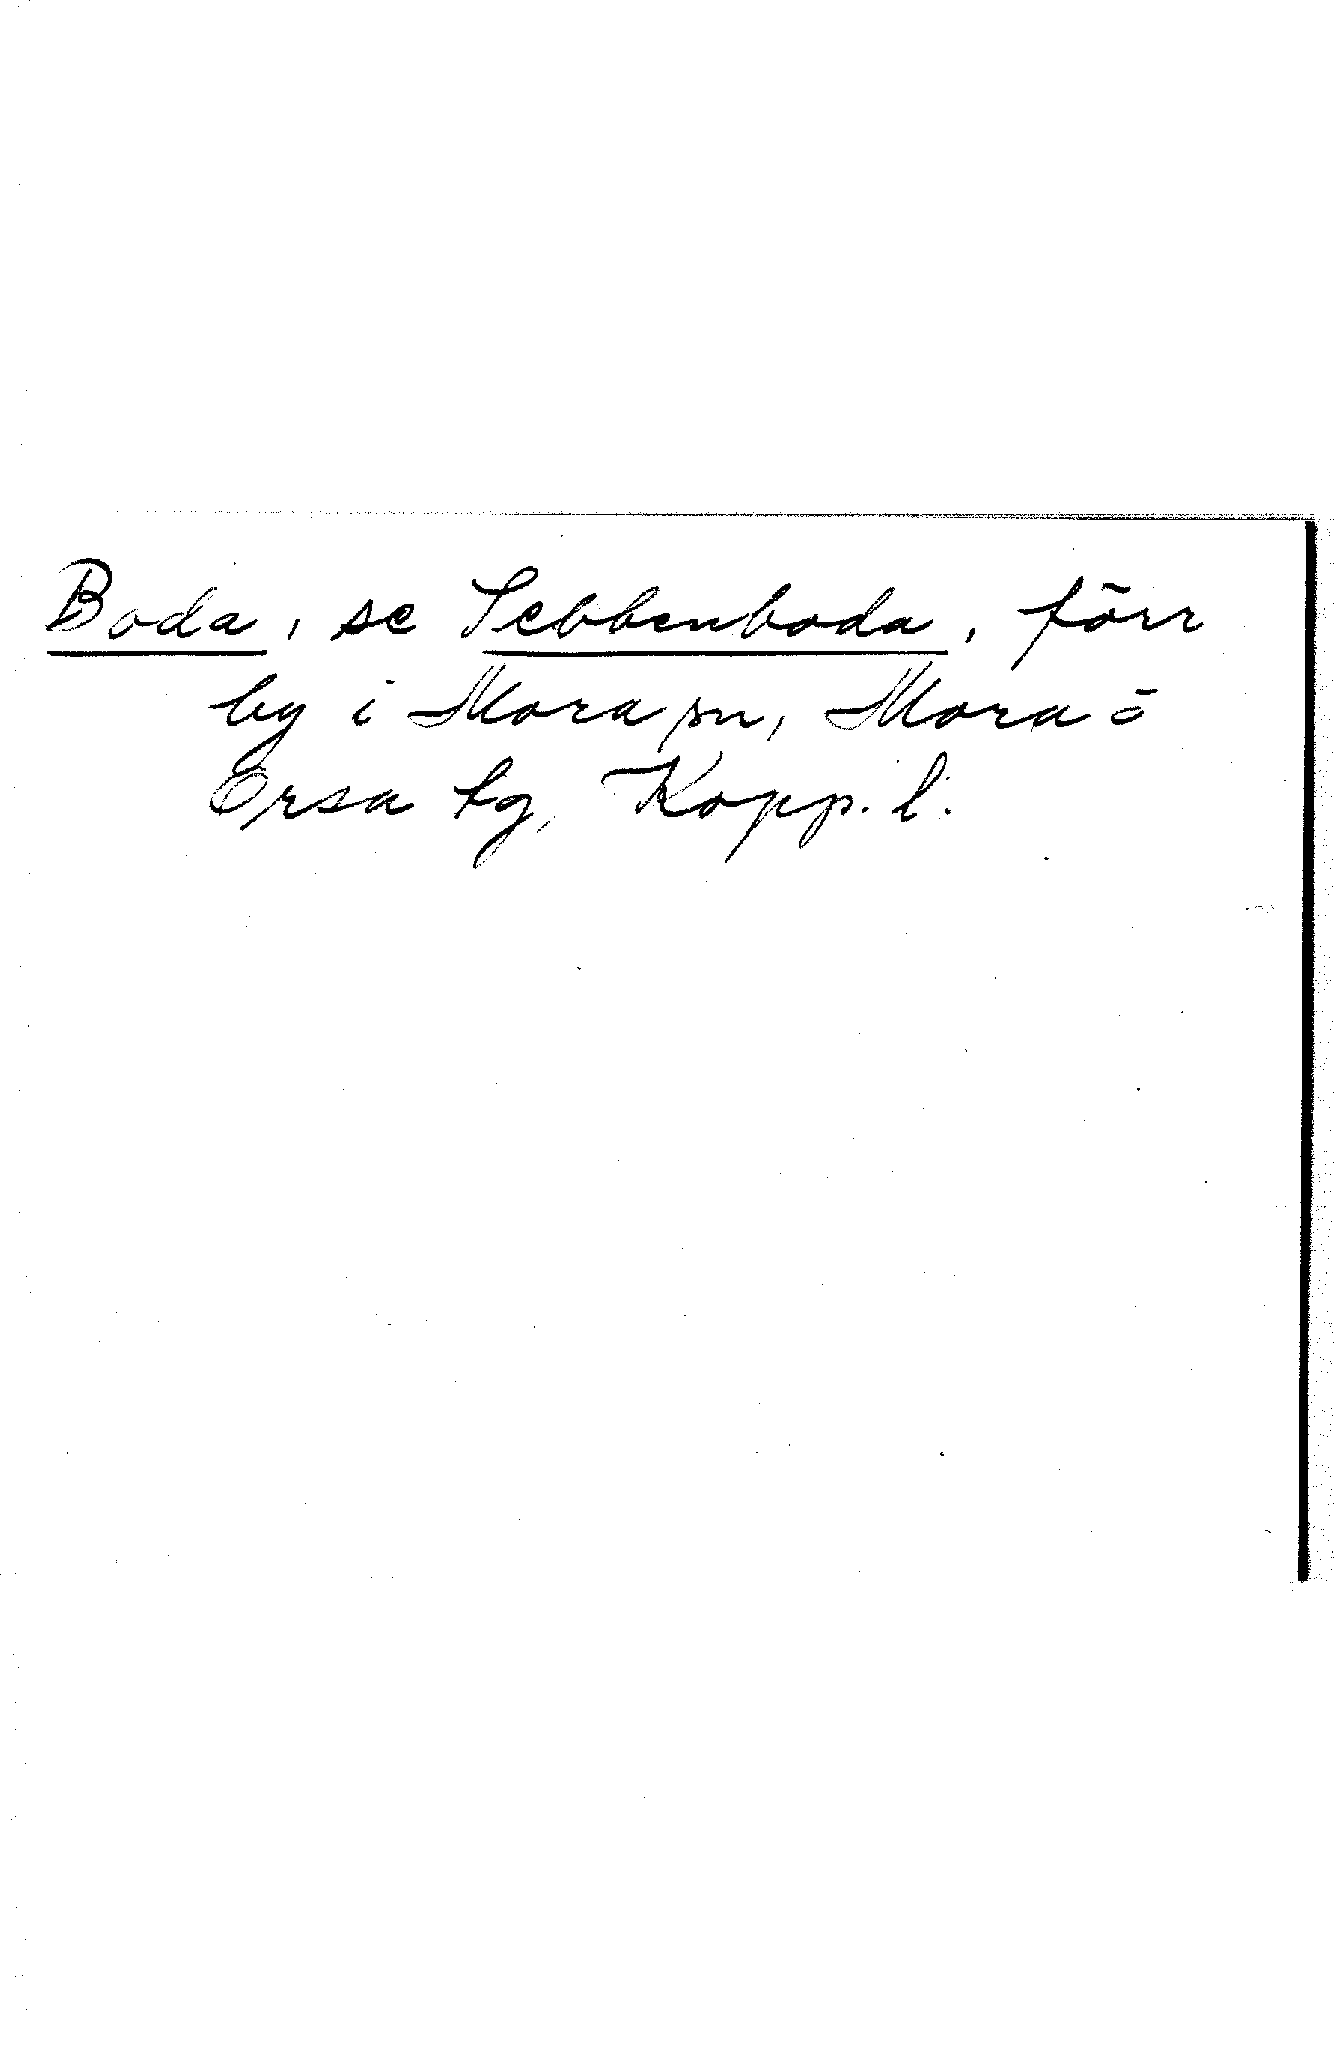 Boda, se Sebbenboda, förr
by i Mora sn, Mora o
Orsa tg, Kopp. l.